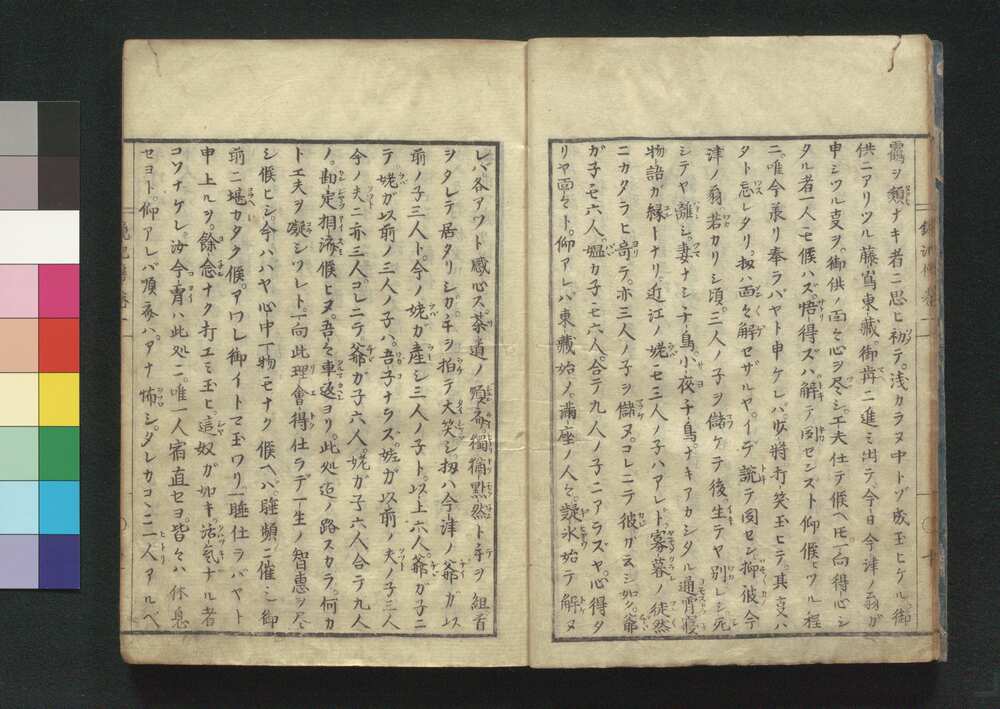 霜ヲ頬ナキ者ニ思ヒ初テ。浅カラヌ中トゾ成玉ヒケル。御
供ニアリツル藤嶌東藏。御肯ニ進ミ出テ。今日今津ノ翁ガ
申シツル叓ヲ。御供ノ面々心ヲ尽シ。工夫仕テ候ヘ𪜈。一向得心シ
タル者一人モ候ハズ。悟得ズハ解テ図センスト仰候ヒツル程
ニ。唯今羕リ奉ラバヤト申ケレバ。少将打笑玉ヒテ。其叓ハ
タト忘レタリ。扨ハ面々解セザルヤ。イデ説テ図セン。抑彼今
津ノ翁若カリシ頃。三人ノ子ヲ儲ケテ後。生テヤ別レシ死
シテヤ離シ。妻ナシ千鳥。小夜千鳥。ナキアカシタル通宵寝
物語カ縁トナリ。近江ノ姥ニモ三人ノ子ハアレド。寡暮ノ徒然
ニカタラヒ寄テ。亦三人ノ子ヲ儲ヌ。コレニテ彼ガ云シ如ク。爺
ガ子モ六人。媼カ子モ六人。合テ九人ノ子ニアラズヤ。心得タ
リヤ面々ト。仰アレバ東藏始ノ。満座ノ人々。凝氷始テ解ヌ
レバ各アツト感心ス。茶道ノ順斎獨猶黙然ト手ヲ組首
ヲタレテ居タリシガ。手ヲ拍テ大笑シ。扨ハ今津ノ爺ガ以
前ノ子三人ト。今ノ姥ガ産シ三人ノ子ト。以上六人。爺ガ子ニ
テ。姥ガ以前ノ三人ノ子ハ。吾子ナラズ。姥ガ以前ノ夫ノ子三人
今ノ夫ニ亦三人。コレニテ爺ガ子六人。姥ガ子六人合テ九人
ノ。曲定相済候ヒヌ。吾々車返ヨリ。此処迠ノ路スカラ。何カ
ト工夫ヲ凝シツレト。一向此理會得仕ラデ。一生ノ智恵ヲ尽
シ候ヒシ。今ハハヤ心中一物モナク候ヘバ。睡頻ニ催シ。御
前ニ堪カタク候。アワレ御イトマ玉ワリ。一睡仕ラバヤト
申上ルヲ。餘念ナク打エミ玉ヒ。這奴ガ如キ。活氣ナル者
コソナケレ。汝今宵ハ此処ニ。唯一人宿直セヨ。皆々ハ休息
セヨト。仰アレバ順斎ハ。アナ怖シ。タレカコンニ二人アルベ